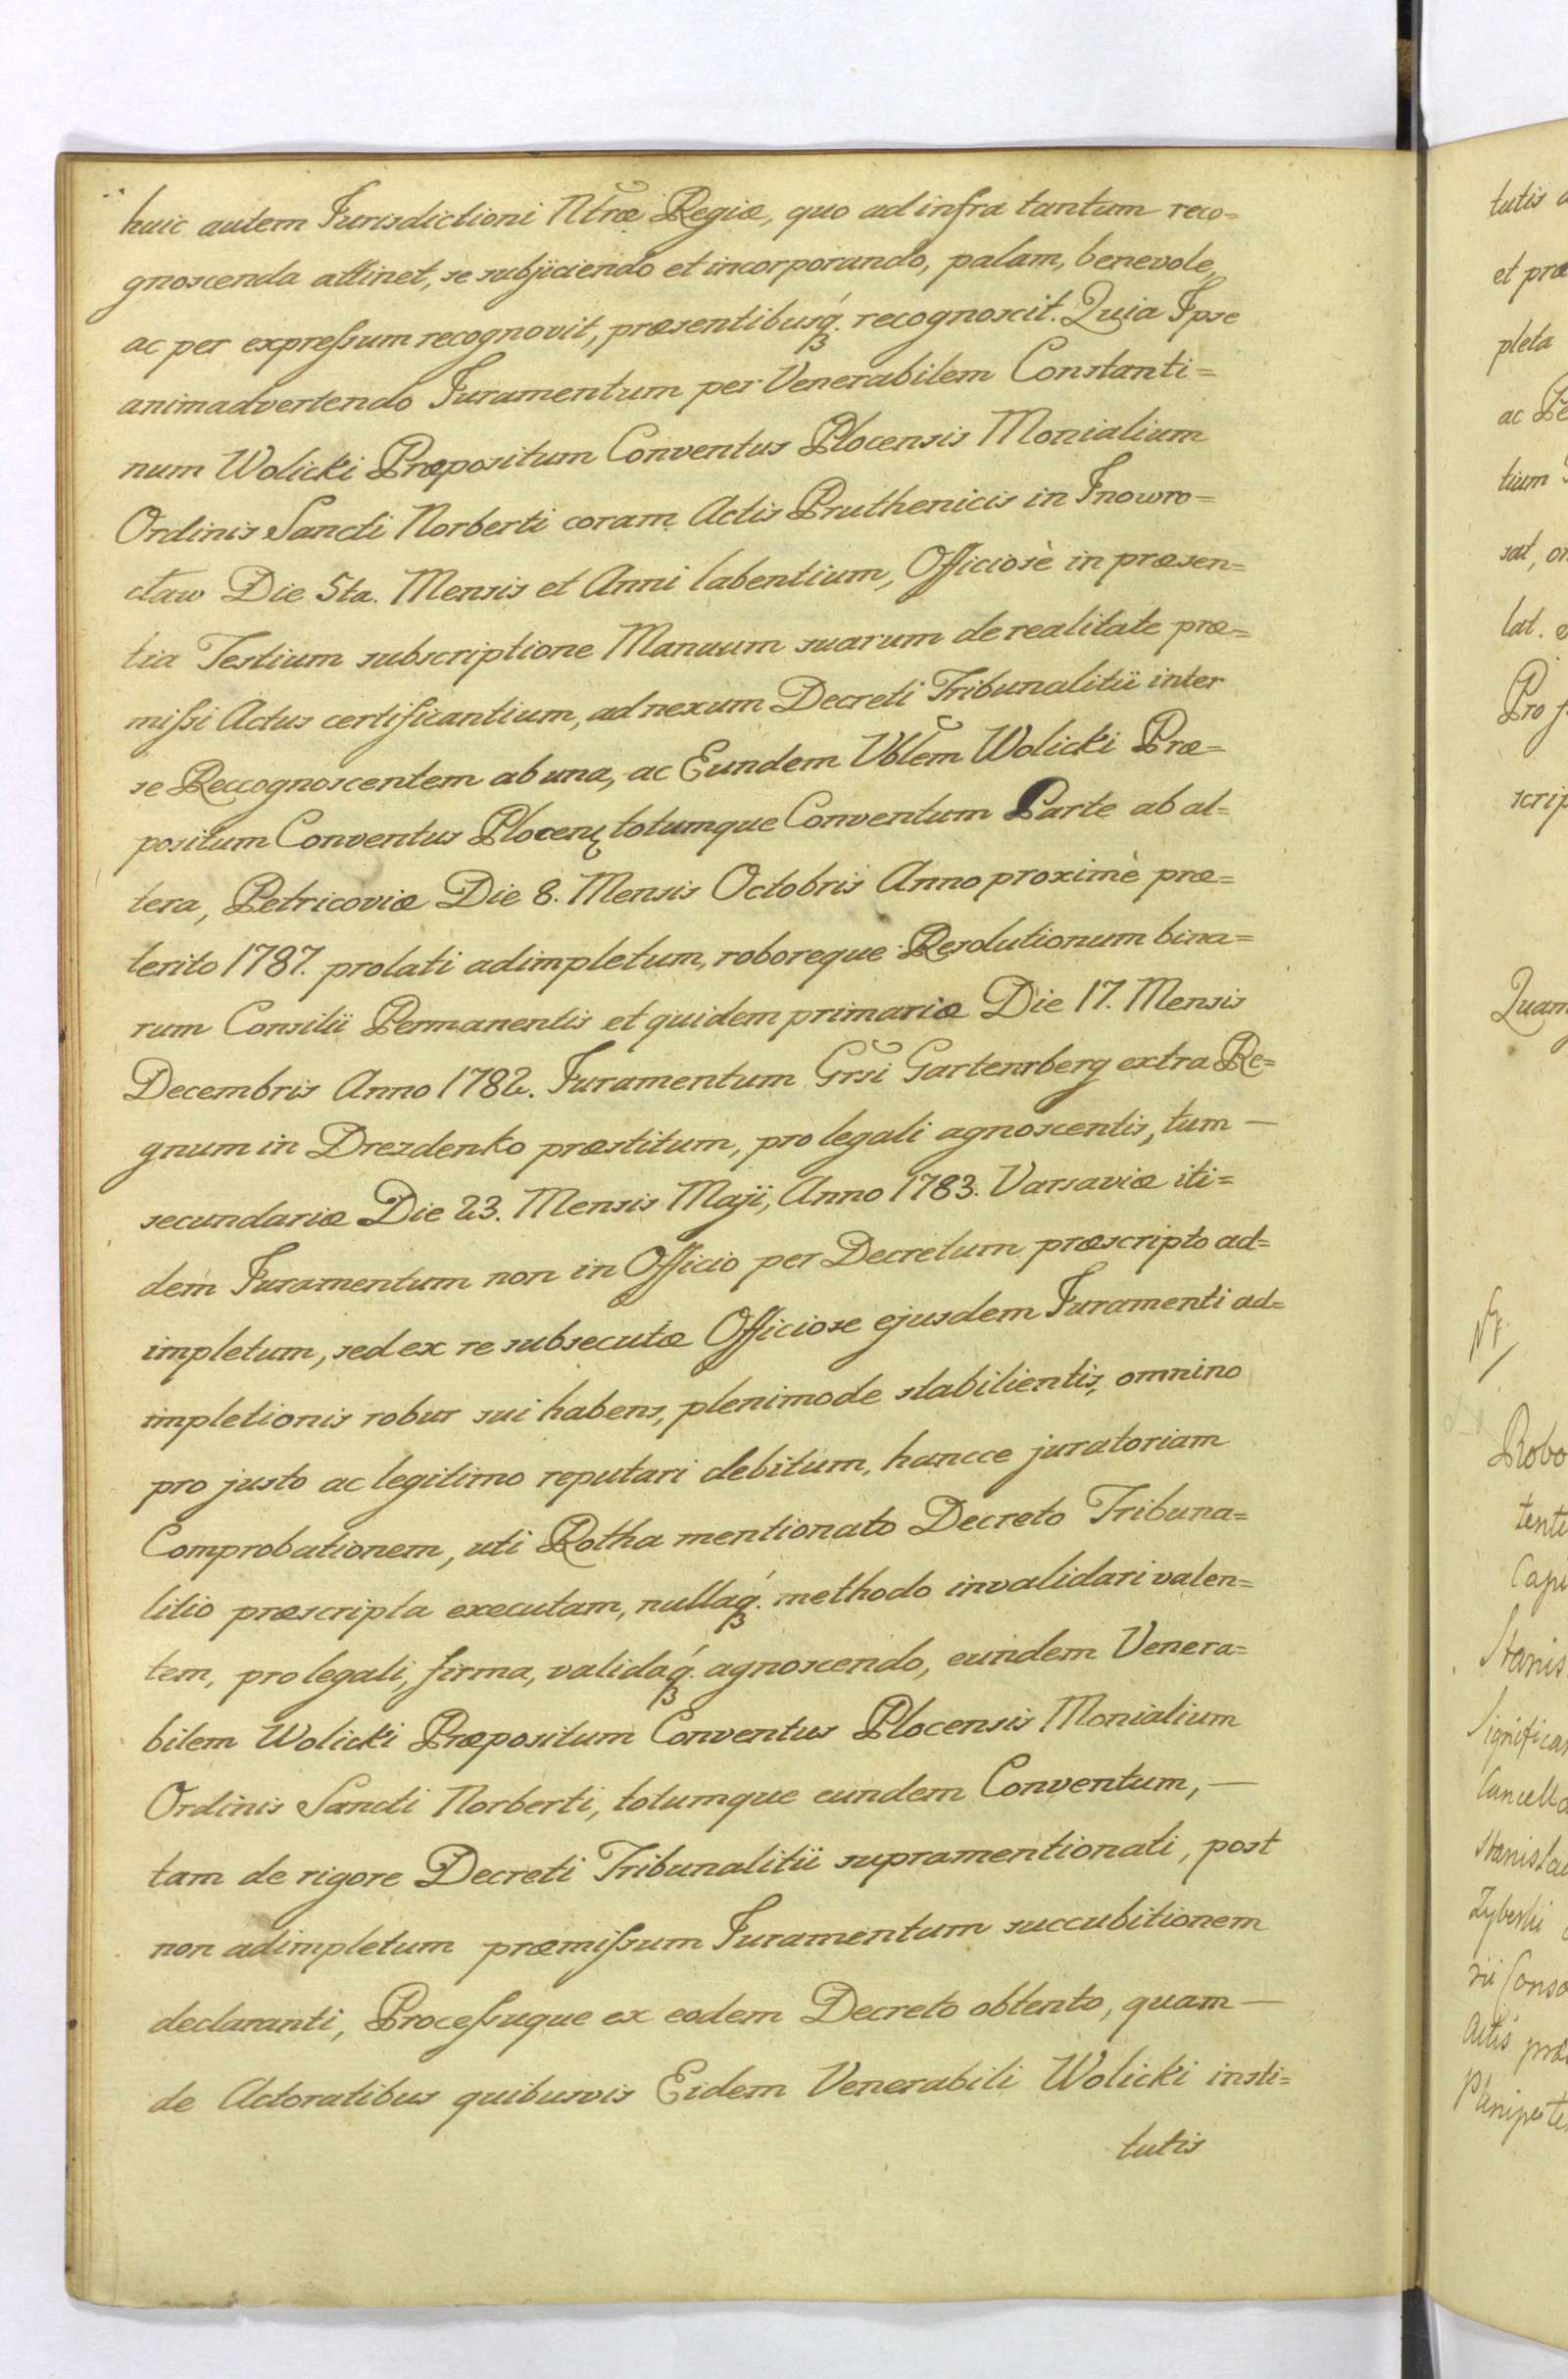 huic autem Jurisdictioni Ntræ Regiæ, quo ad infra tantum reco=
gnoscenda attinet, se subjiciendo et incorporando, palam, benevole,
ac per expreſsum recognovit, præsentibusq́. recognoscit. Quia Ipse
animadvertendo Juramentum per Venerabilem Constanti=
num Wolicki Præpositum Conventus Plocensis Monialium
Ordinis Sancti Norberti coram Actis Pruthenicis in Inowro=
cław Die 5ta. Mensis et Anni labentium, Officiosè in præsen=
tia Testium subscriptione Manuum suarum de realitate præ=
miſsi Actus certificantium, ad nexum Decreti Tribunalitii inter
se Reccognoscentem ab una, ac Eundem Vblem Wolicki Præ=
positum Conventus Plocens totumque Conventum Parte ab al=
tera, Petricoviæ Die 8. Mensis Octobris Anno proximè præ=
terito 1787. prolati adimpletum, roboreque Resolutionum bina=
rum Consilii Permanentis et quidem primariæ Die 17. Mensis
Decembris Anno 1782. Juramentum Grsi Gartenrberg extra Re=
gnum in Drezdenko præstitum, pro legali agnoscentis, tum —
secundariæ Die 23. Mensis Maji, Anno 1783. Varsaviæ iti=
dem Juramentum non in Officio per Decretum præscripto ad=
impletum, sed ex re subsecutæ Officiose ejusdem Juramenti ad=
impletionis robur sui habens, plenimode stabilientis, omnino
pro justo ac legitimo reputari debitum, hancce juratoriam
Comprobationem, uti Rotha mentionato Decreto Tribuna=
litio præscripta executam, nullaq́. methodo invalidari valen=
tem, pro legali, firma, validaq́. agnoscendo, eundem Venera=
bilem Wolicki Præpositum Conventus Plocensis Monialium
Ordinis Sancti Norberti, totumque eundem Conventum, —
tam de rigore Decreti Tribunalitii supramentionati, post
non adimpletum præmiſsum Juramentum succubitionem
declaranti, Proceſsuque ex eodem Decreto obtento, quam —
de Actoratibus quibusvis Eidem Venerabili Wolicki insti=
tutis
tutis
et præ
pleta
ac
tium
sat,
lat.
Pro
scrip
Quam
Robo
tent
Cap
Stanis
Significa
Cancell
Stanisla
Zyberki
rii Conso
Actis præ
Plenipote